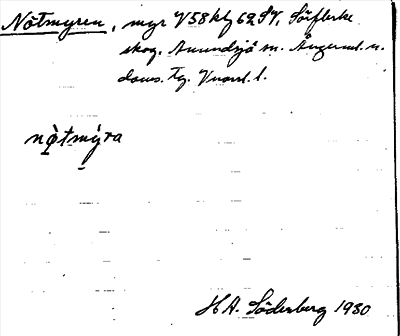 Nötmyren, myr V58kl 62 SV, Söflerke
skog. Anundsjö sn. Ångerml. n.
doms. Tg. Vnorrl. l.
nö̀tmýra
H A. Söderberg 1930